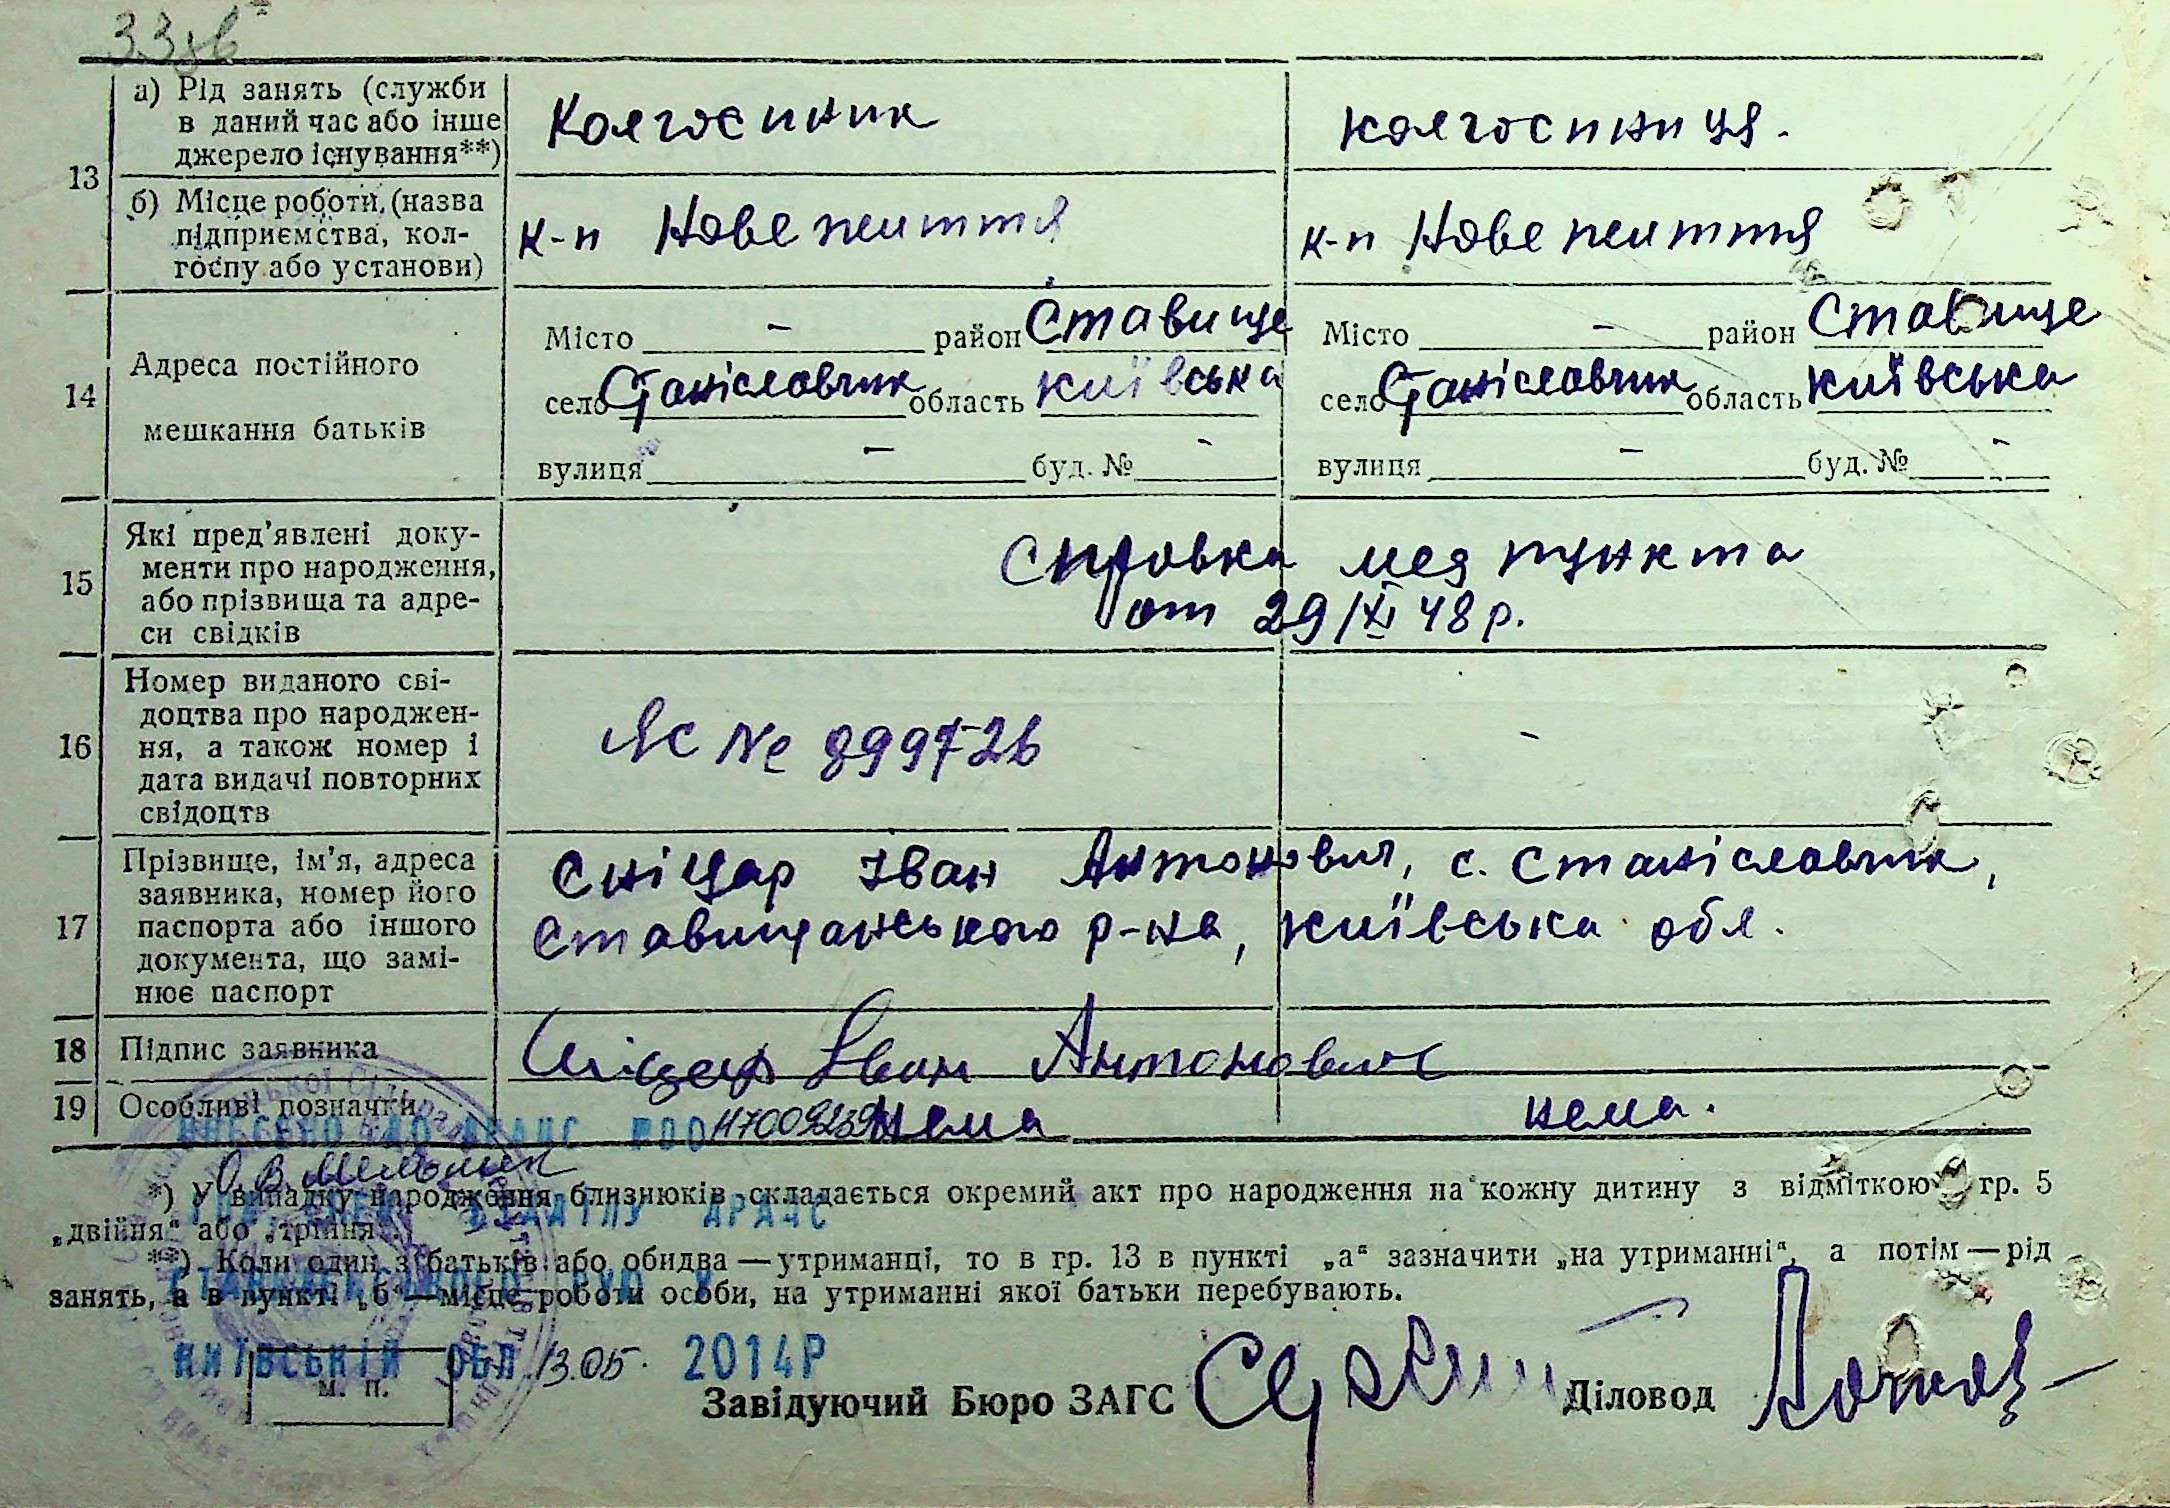 13
а) Рід занять (служби
в даний час або інше
джерело існування**)
Колгоспник
колгоспниця.
б) Місце роботи, (назва
підприємства, кол-
госпу або установи)
к-п Нове життя
к-п Нове життя
14
Адреса постійного
мешкання батьків
Місто - район Ставище
село Станіславчик область Київська
вулиця - буд. № -
Місто - район Ставище
село Станіславчик область Київська
вулиця - буд. № -
15
Які пред'явлені доку-
менти про народження,
або прізвища та адре-
си свідків
Справка мед пункта
от 29/XI 48 р.
16
Номер виданого сві-
доцтва про народжен-
ня, а також номер і
дата видачі повторних
свідоцтв
ЯС № 899726
-
17
Прізвище, ім'я, адреса
заявника, номер його
паспорта або іншого
документа, що замі-
нює паспорт
Сніцар Іван Антонович, с. Станіславчик,
Ставищанського р-на, Київська обл.
18
Підпис заявника
Сніцар Іван Антонович
19
Особливі позначки
нема
нема.
ВНЕСЕНО ДО ДРАЦС №00117009239
О.В. Мельник
*) У випадку народження близнюків складається окремий акт про народження на кожну дитину з відміткою гр. 5
„двійня“ або „трійня“.
ВІДДІЛУ ДРАЦС
**) Коли один з батьків або обидва—утриманці, то в гр. 13 в пункті „а“ зазначити „на утриманні“, а потім—рід
занять, а в пункті „б“—місце роботи особи, на утриманні якої батьки перебувають.
КИЇВСЬКІЙ ОБЛ. 13.05. 2014Р
м. п.
Завідуючий Бюро ЗАГС
Діловод